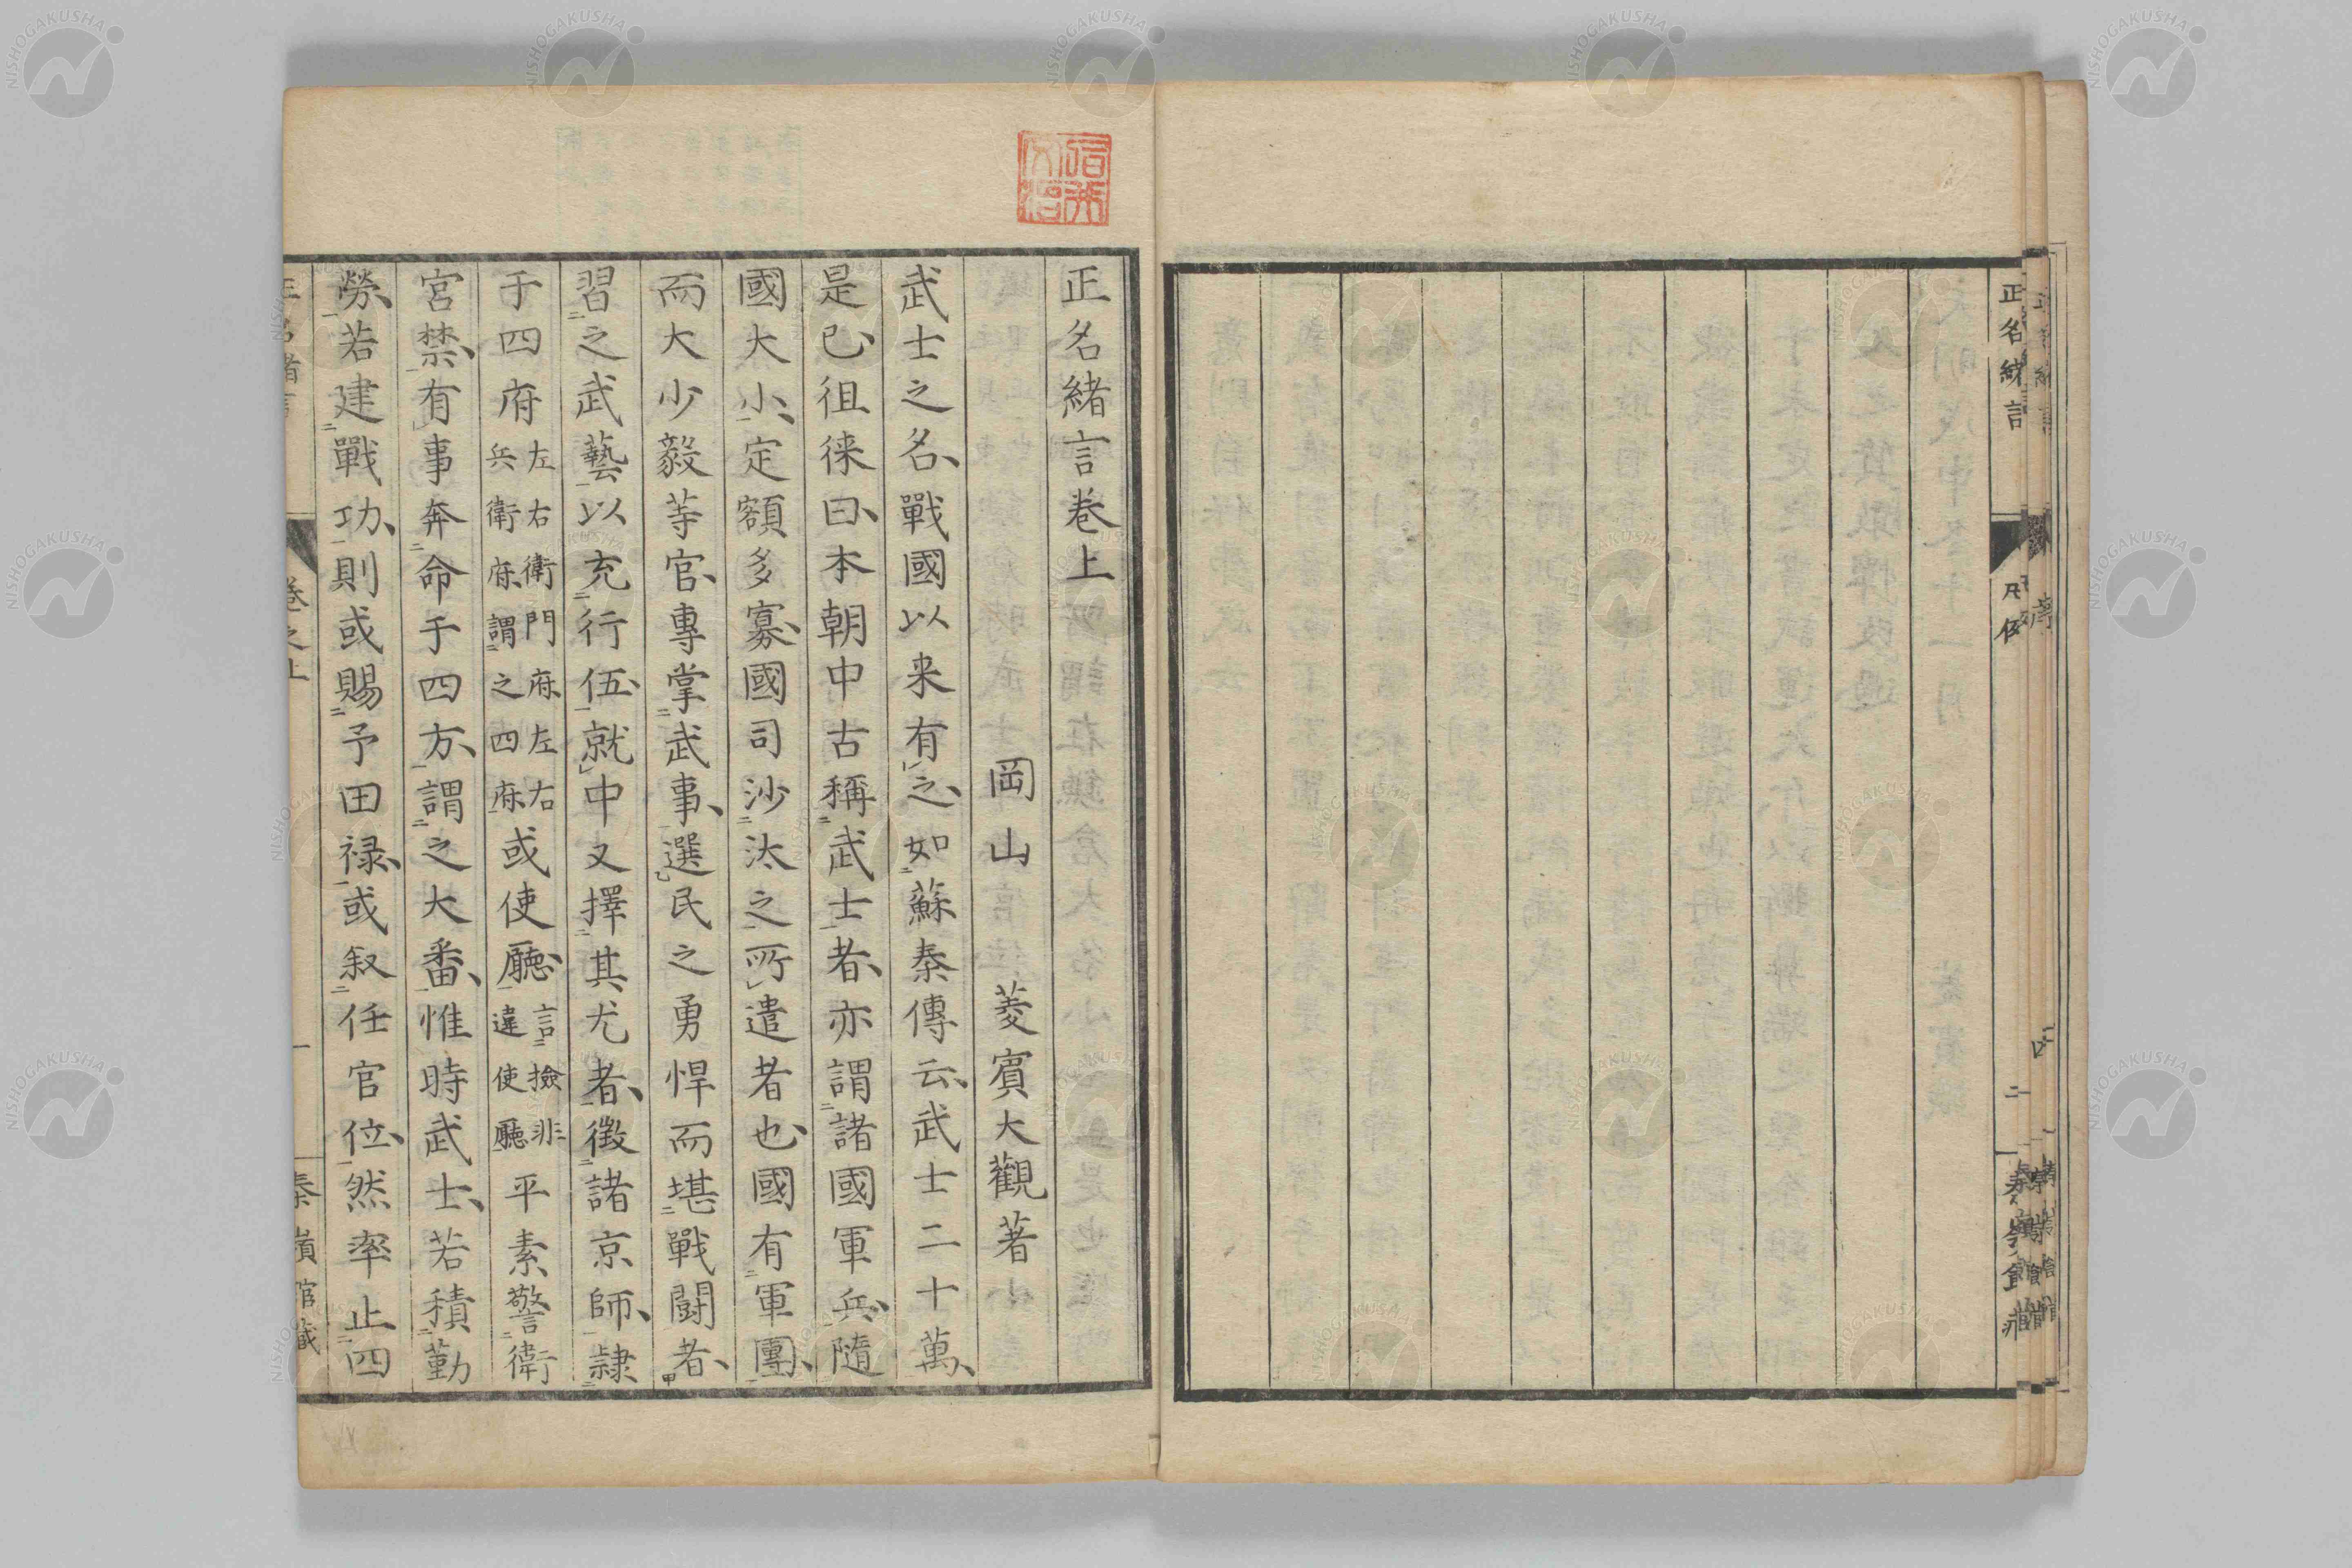 正名緒言
凡例
二
正名緒言巻上
岡山 菱賓大觀著
武士之名、戰國以来有之、如蘇秦傳云、武士二十萬、
是已、徂徠曰、本朝中古稱武士者、亦謂諸國軍兵、隨
國大小、定額多寡、國司沙汰之所遣者也、國有軍團、
而大少毅等官、專掌武事、選民之勇悍而堪戰鬪者、
習之武藝、以充行伍、就中又擇其尤者、徴諸京師、隷
于四府左右衛門府左右兵衛府謂之四府或使廳言撿非違使廳平素警衛
宮禁、有事奔命于四方、謂之大番、惟時武士、若積勤
勞、若建戰功、則或賜予田禄、或叙任官位、然率止四
巻之上
一
NISHOGAKUSHA